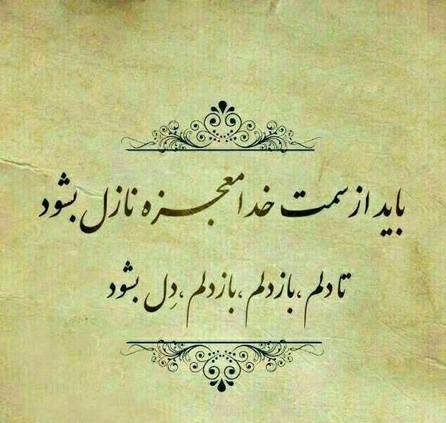 باید از سمت خدا معجزه نازل بشود
تا دلم ،باز دلم ،باز دلم ،دِل بشود